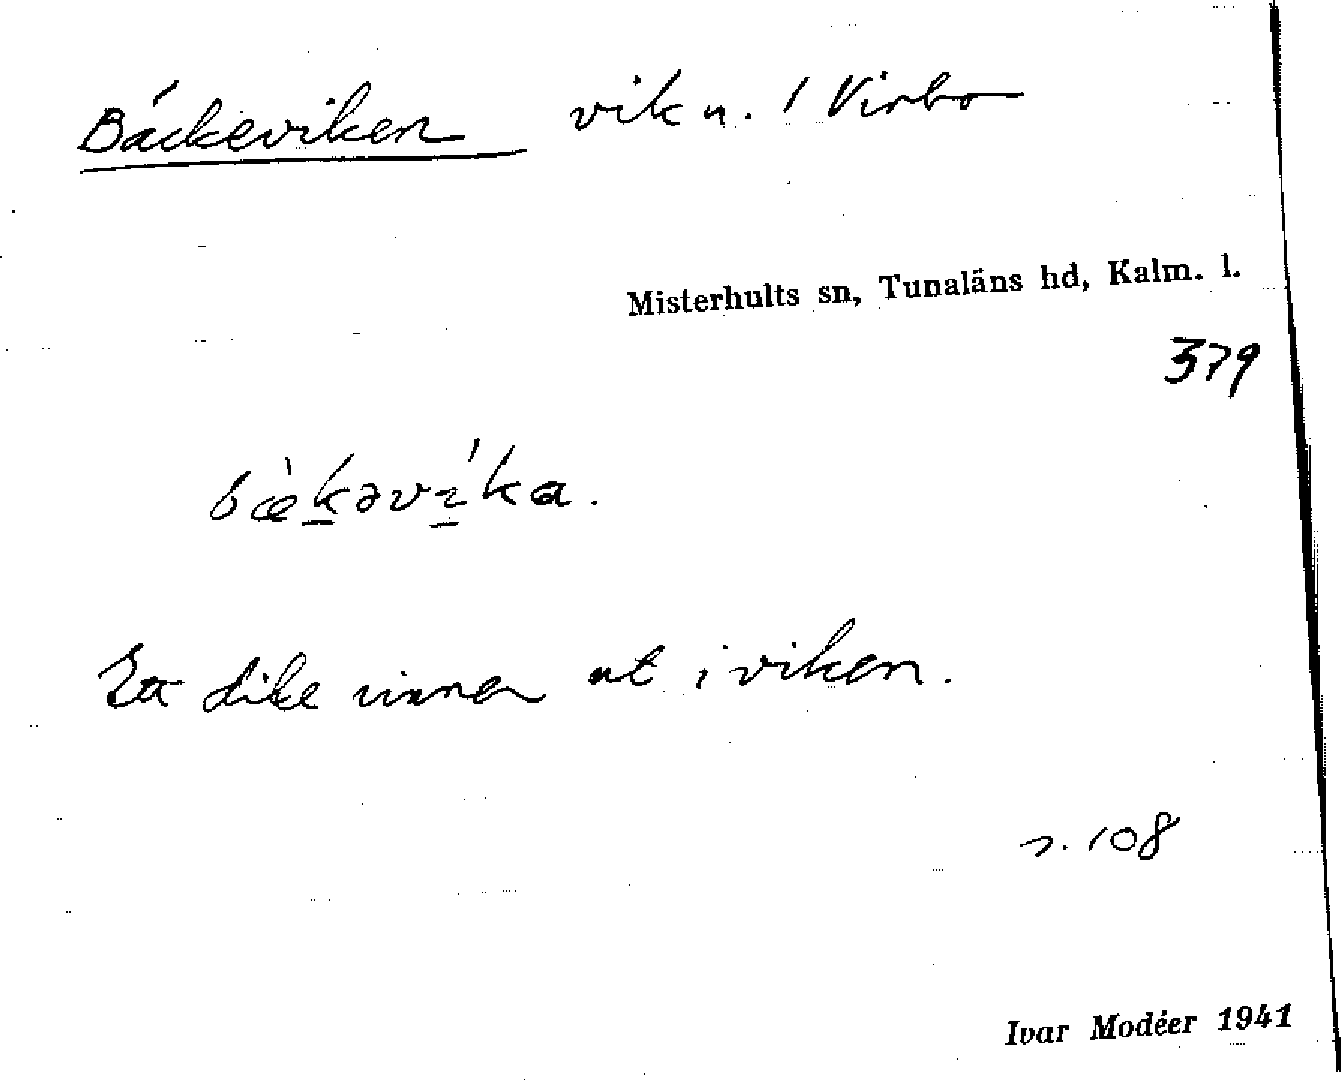 Bäckeviken vik n. 1 Virbo
Misterhults sn, Tunaläns hd, Kalm. l.
379
bæ̀k̲əvɪ̲́ka.
Ett dike rinner ut i viken.
s. 108
Ivar Modéer 1941